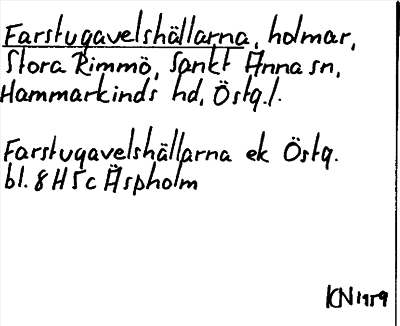 Farstugavelshällarna, holmar,
Stora Rimmö, Sankt Anna sn,
Hammarkinds hd, Östg.l.
Farstugavelshällarna ek Östg.
bl. 8 H 5 c Äspholm
KN 1959